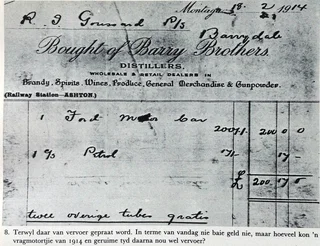 Montagu 18. 2 1914
R. J. Goussard P/s
Barrydale
Bought of Barry Brothers,
DISTILLERS,
WHOLESALE & RETAIL DEALERS IN
Brandy, Spirits, Wines, Produce, General Merchandise & Gunpowder.
(Railway Station—ASHTON.)
1 Ford Motor Car 200 0 0
1 c/s Petrol 17/- 17 -
£ 200 17 0
twee overige tubes gratis
8. Terwyl daar van vervoer gepraat word. In terme van vandag nie baie geld nie, maar hoeveel kon 'n
vragmotortjie van 1914 en geruime tyd daarna nou wel vervoer?